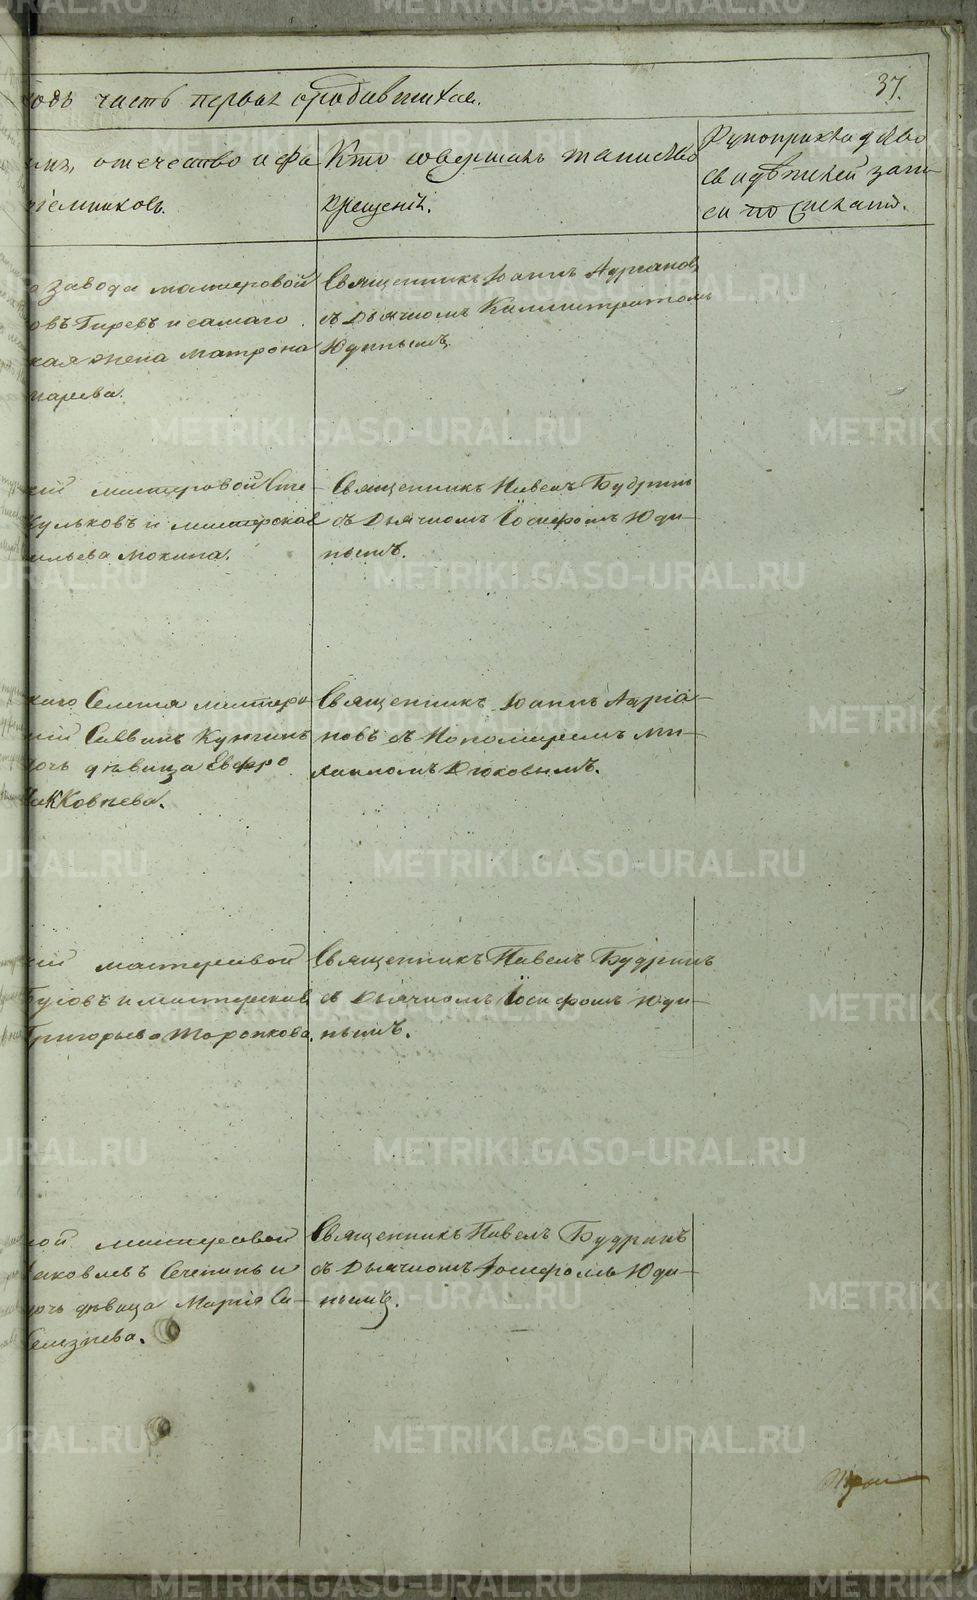 37.
годъ часть первая о родившихся.
имя, отечество и фа
ріемниковъ.
Кто совершалъ таинство
крещенія.
Рукоприкладство
свидѣтелей запи
си по желанію.
о завода мастеровой
овъ Гиревъ и самаго
кая жена Матрона
Священникъ Іоаннъ Адріановъ
съ Дьячкомъ Каллистратомъ
Юдинымъ.
кій мастеровой Сте-
Кульковъ и мастерская
сильева Мокина.
Священникъ Павелъ Будринъ
съ Дьячкомъ Іосифомъ Юди-
нымъ.
каго Селенія мастеро
ній Саввинъ Кунгинъ
дочь дѣвица Евфро
Яковлева.
Священникъ Іоаннъ Адріа-
новъ съ Пономаремъ Ми-
хаиломъ Дюковымъ.
кій мастеровой
Бусовъ и мастерская
Григорьева Торопкова.
Священникъ Павелъ Будринъ
съ Дьячкомъ Іосифомъ Юди-
нымъ.
кой мастеровой
Яковлевъ Сеченинъ и
дочь дѣвица Марія Са-
Селезнева.
Священникъ Павелъ Будринъ
съ Дьячкомъ Іосифомъ Юди-
нымъ.
METRIKI.GASO-URAL.RU